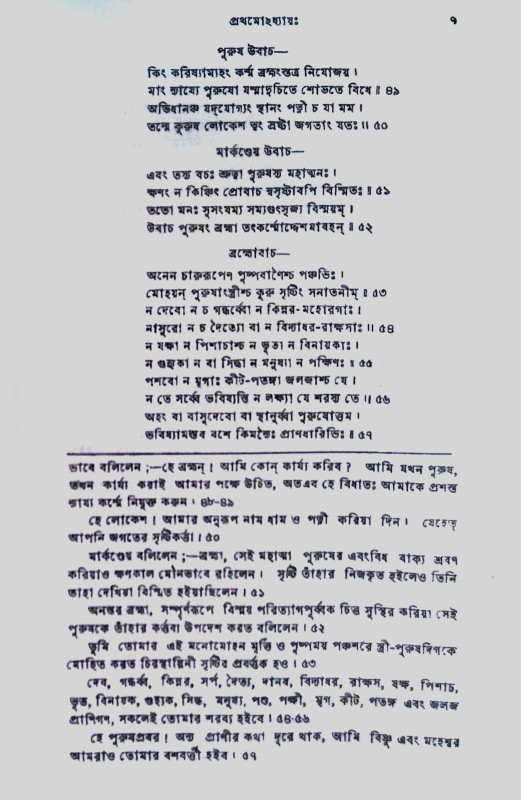 প্রথমোঽধ্যায়ঃ ৭
পুরুষ উবাচ—
কিং করিষ্যাম্যহং কর্ম্ম ব্রহ্মংস্তত্র নিযোজয়।
মাং ন্যায্যে পুরুষো যস্মাদুচিতে শোভতে বিধে॥ ৪৯
অভিধানঞ্চ যদ্‌যোগ্যং স্থানং পত্নী চ যা মম।
তন্মে কুরুষ্ব লোকেশ ত্বং স্রষ্টা জগতাং যতঃ॥ ৫০
মার্কণ্ডেয় উবাচ—
এবং তস্য বচঃ শ্রুত্বা পুরুষস্য মহাত্মনঃ।
ক্ষণং ন কিঞ্চিৎ প্রোবাচ স্বসৃষ্টাবপি বিস্মিতঃ॥ ৫১
ততো মনঃ সুসংযম্য সম্যগুৎসৃজ্য বিস্ময়ম্।
উবাচ পুরুষং ব্রহ্মা তৎকর্ম্মোদ্দেশমাবহন্॥ ৫২
ব্রহ্মোবাচ—
অনেন চারুরূপেণ পুষ্পবাণৈশ্চ পঞ্চভিঃ।
মোহয়ন্ পুরুষাংস্ত্রীশ্চ কুরু সৃষ্টিং সনাতনীম্॥ ৫৩
ন দেবো ন চ গন্ধর্ব্বো ন কিন্নর-মহোরগাঃ।
নাসুরো ন চ দৈত্যো বা ন বিদ্যাধর-রাক্ষসাঃ॥ ৫৪
ন যক্ষা ন পিশাচাশ্চ ন ভূতা ন বিনায়কাঃ।
ন গুহ্যকা ন বা সিদ্ধা ন মনুষ্যা ন পক্ষিণঃ॥ ৫৫
পশবো ন মৃগাঃ কীট-পতঙ্গা জলজাশ্চ যে।
ন তে সর্ব্বে ভবিষ্যন্তি ন লক্ষ্যা যে শরস্য তে॥ ৫৬
অহং বা বাসুদেবো বা স্থাণুর্ব্বা পুরুষোত্তম।
ভবিষ্যামস্তব বশে কিমন্যৈঃ প্রাণধারিভিঃ॥ ৫৭
ভাবে বলিলেন;—হে ব্রহ্মন্! আমি কোন্ কার্য্য করিব? আমি যখন পুরুষ,
তখন কার্য্য করাই আমার পক্ষে উচিত, অতএব হে বিধাতঃ আমাকে প্রশস্ত
ন্যায্য কর্ম্মে নিযুক্ত করুন। ৪৮-৪৯
হে লোকেশ! আমার অনুরূপ নাম ধাম ও পত্নী করিয়া দিন। যেহেতু
আপনি জগতের সৃষ্টিকর্ত্তা। ৫০
মার্কণ্ডেয় বলিলেন;—ব্রহ্মা, সেই মহাত্মা পুরুষের এবংবিধ বাক্য শ্রবণ
করিয়াও ক্ষণকাল মৌনভাবে রহিলেন। সৃষ্টি তাঁহার নিজকৃত হইলেও তিনি
তাহা দেখিয়া বিস্মিত হইয়াছিলেন। ৫১
অনন্তর ব্রহ্মা, সম্পূর্ণরূপে বিস্ময় পরিত্যাগপূর্ব্বক চিত্ত সুস্থির করিয়া সেই
পুরুষকে তাঁহার কর্ত্তব্য উপদেশ করত বলিলেন। ৫২
তুমি তোমার এই মনোমোহন মূর্ত্তি ও পুষ্পময় পঞ্চশরে স্ত্রী-পুরুষদিগকে
মোহিত করত চিরস্থায়িনী সৃষ্টির প্রবর্ত্তক হও। ৫৩
দেব, গন্ধর্ব্ব, কিন্নর, সর্প, দৈত্য, দানব, বিদ্যাধর, রাক্ষস, যক্ষ, পিশাচ,
ভূত, বিনায়ক, গুহ্যক, সিদ্ধ, মনুষ্য, পশু, পক্ষী, মৃগ, কীট, পতঙ্গ এবং জলজ
প্রাণিগণ, সকলেই তোমার শরব্য হইবে। ৫৪-৫৬
হে পুরুষপ্রবর! অন্য প্রাণীর কথা দূরে থাক, আমি বিষ্ণু এবং মহেশ্বর
আমরাও তোমার বশবর্ত্তী হইব। ৫৭